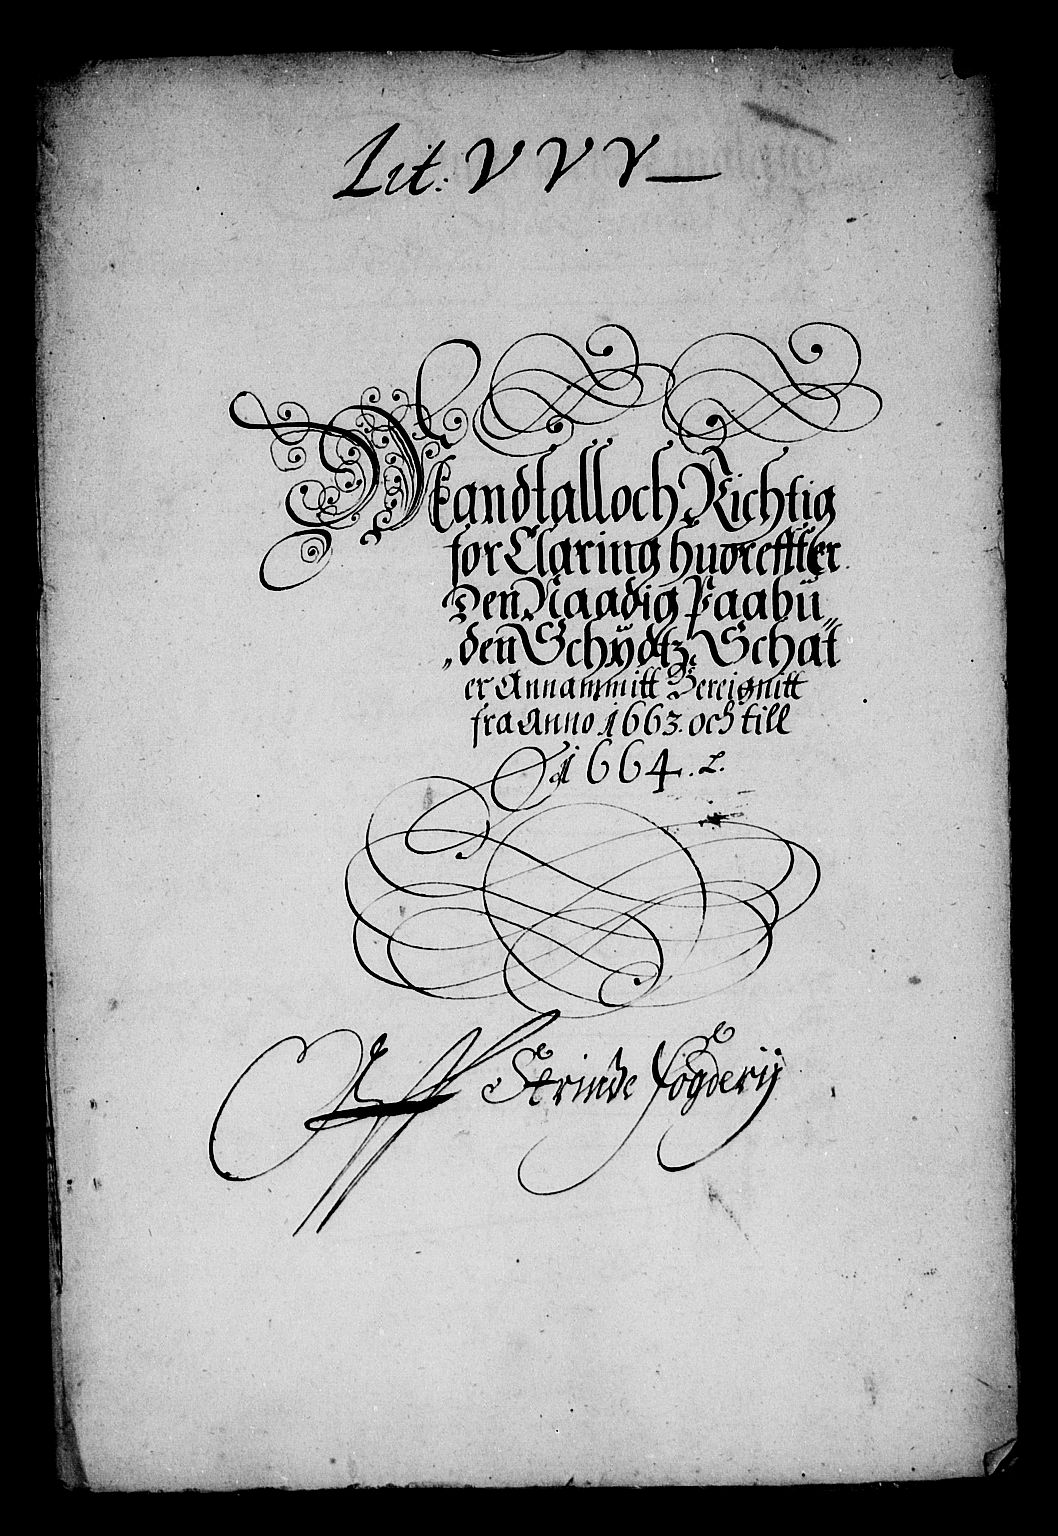 Lit: VVV
Mandtall och Richtig
for Claring huoreffter
den Naadig Paabü„
„den Schydtz Schat
er Annammitt Bereignitt
fra Anno 1663. och till
1664. L.
Aff Strinde fögderij